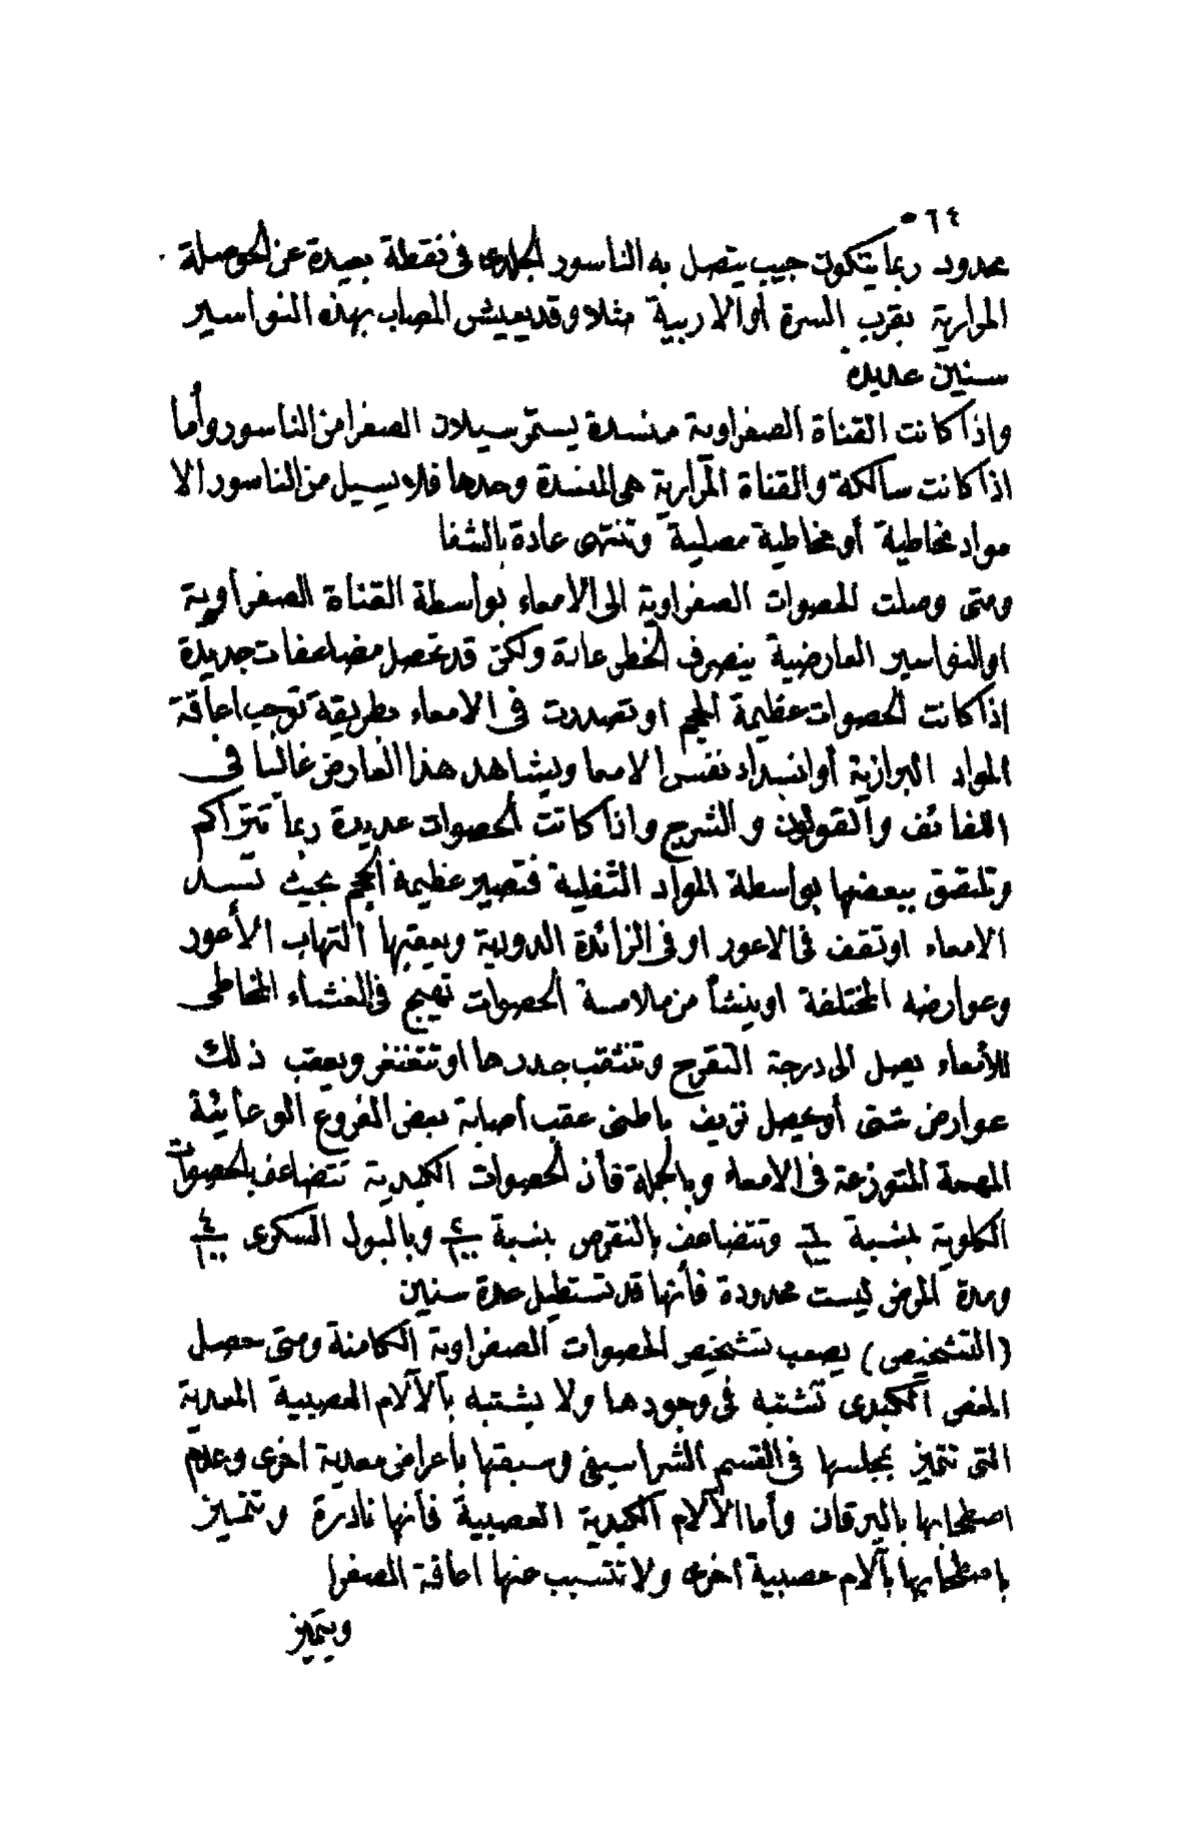 ٥٦٤
محدود ربما يتكون جيب يتصل به الناسور الجلدى فى نقطة بعيدة عن الحوصلة
المرارية بقرب السرة أو الاربية مثلا وقد يعيش المصاب بهذه النواسير
سنين عديدة
واذا كانت القناة الصفراوية منسدة يستمر سيلان الصفرا من الناسور وأما
اذا كانت سالكة والقناة المرارية هى المنسدة وحدها فلا يسيل من الناسور الا
مواد مخاطية أو مخاطية مصلية وتنتهى عادة بالشفا
ومتى وصلت الحصوات الصفراوية الى الامعاء بواسطة القناة الصفراوية
او النواسير العارضية ينصرف الخطر عادة ولكن قد تحصل مضاعفات جديدة
اذا كانت الحصوات عظيمة الحجم او تصددت فى الامعاء بطريقة توجب اعاقة
المواد البرازية أو انسداد نفس الامعا ويشاهد هذا العارض غالبا فى
اللفائف والقولون والشرج واذا كانت الحصوات عديدة ربما تتراكم
وتلتصق ببعضها بواسطة المواد الثفلية فتصير عظيمة الحجم بحيث تسد
الامعاء او تقف فى الاعور او فى الزائدة الدودية ويعقبها التهاب الأعور
وعوارضه المختلفة او ينشأ من ملامسة الحصوات تهيج فى الغشاء المخاطى
للأمعاء يصل الى درجة التقرح وتنثقب جدرها او تتغنغر ويعقب ذلك
عوارض شتى أو يحصل نزيف باطنى عقب أصابة بعض الفروع الوعائية
المهمة المتوزعة فى الامعاء وبالجملة فأن الحصوات الكبدية تتضاعف بالحصوات
الكلوية بنسبة ٦/١٠٠ وتتضاعف بالنقرس بنسبة ٢/١٠٠ وبالبول السكرى ٤/١٠٠
ومدة المرض ليست محدودة فأنها قد تستطيل عدة سنين
(التشخيص) يصعب تشخيص الحصوات الصفراوية الكامنة ومتى حصل
المغص الكبدى تشتبه فى وجودها ولا يشتبه بالآلام العصبية المعدية
التى تتميز بمجلسها فى القسم الشراسيفى وسبقها بأعراض معدية اخرى وعدم
اصطحابها باليرقان وأما الآلام الكبدية العصبية فأنها نادرة وتتميز
باصطحابها بآلام عصبية اخرى ولا تتسبب عنها اعاقة الصفرا
ويتميز